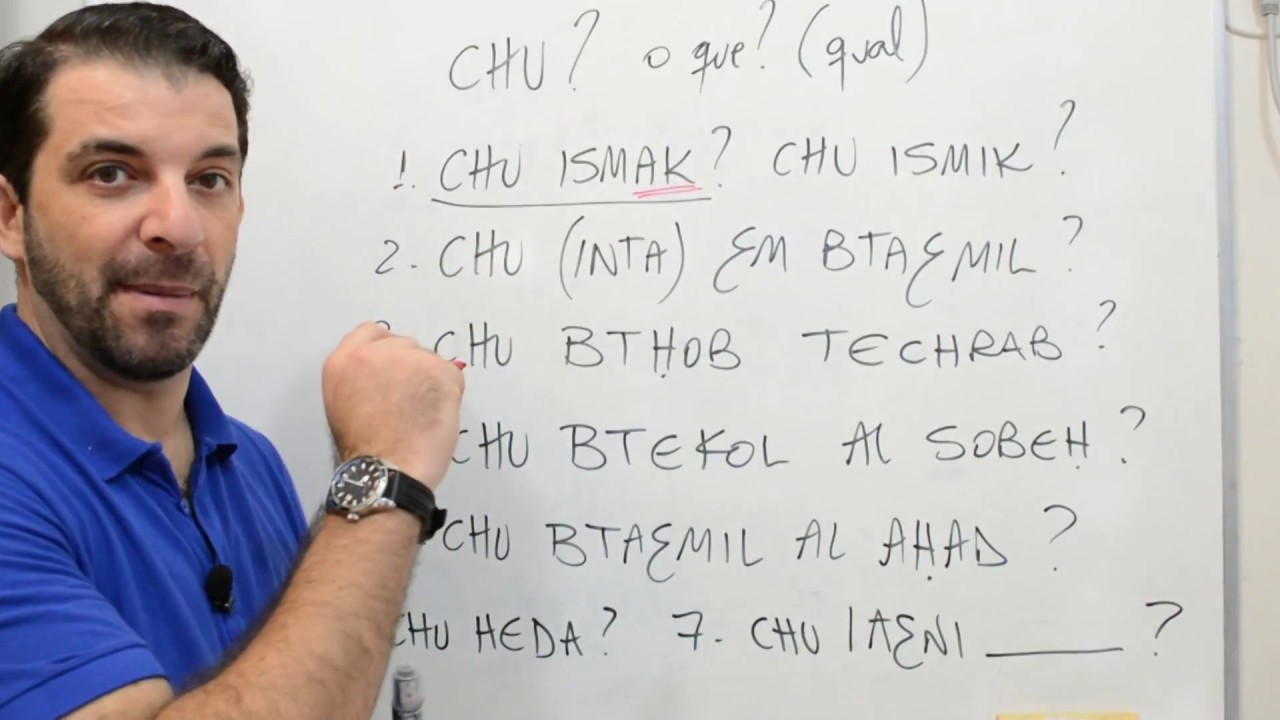 CHU? o que? (qual)
1. CHU ISMAK? CHU ISMIK?
2. CHU (INTA) ƸM BTAƸMIL?
CHU BTḤOB TECHRAB?
CHU BTEKOL Al SOBEḤ?
CHU BTAƸMIL AL AḤAD?
CHU HEDA? 7. CHU IAƸNI ______?